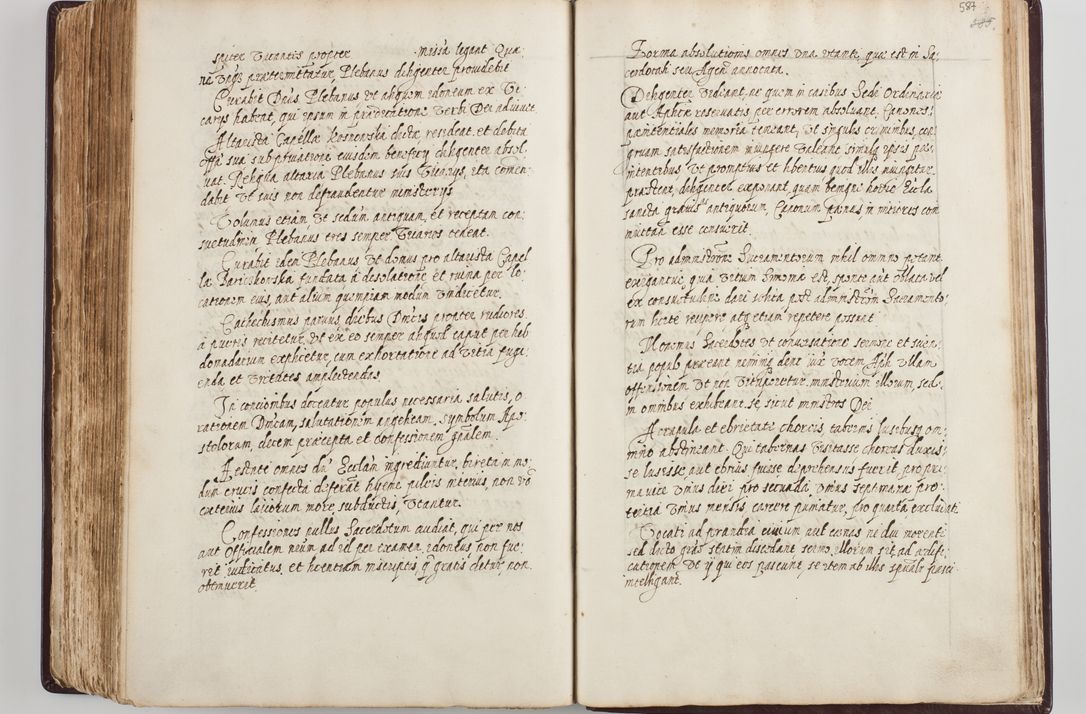 spiter vacantis propter missa legant Qua
ne vnqz praetermittatur, Plebanus diligenter prouidebit
Curabit Dnus Plebanus vt aliquem idoneum ex Vi
carys habeat, qui ipsum in praedicatione Verbi Dei adiuuet.
Altarista Capellae Kosnenska dictae resideat et debita
offa sua sub priuatione eiusdem beneficy diligenter absol
uat. Reliqua altaria Plebanus suis Vicarys, ita comen
dabit vt suis non defraudentur ministerys.
Volumus etiam vt secdum antiquam, et receptam con
suetudinem Plebanus tres semper Vicarios cedeat.
Curabit idem Plebanus vt domus pro altarista Capel
lae fundata a desolatione et ruina per lo
cationem eius, aut alium quempiam modum vindicetur.
Cathechismus paruus, diebus Dnicis propter rudiores
a pueris recitetur, vt ex eo semper aliquod caput per heb
domadarium explicetur, cum exhortatione ad vitia fugi
enda et virtutes amplectendas
In concionibus doceatur populus necessaria salutis, o
rationem Dnicam, salutationem angelicam, symbolum Apo
stolorum, decem praecepta et confessionem gnalem
Aestate omnes du Ecclam ingrediuntur, bireta in mo
dum crucis confecta deferat hyeme pileis interius, non vo
laicorum more subductis, vtantur.
Confessiones nullus Sacerdotum audiat, qui per nos
aut Officialem nrum ad id per examen, idoneus non fue
rit iudicatus, et licentiam in scriptis, q gratis detur, non
obtinuerit.
587
Forma absolutionis omnes vna vtantr, quae est in Sa
cerdotali seu Agen annotata.
Diligenter videant, ne quem in casibus Sedi Ordinaria
aut Aplicae reseruatis per errorem absoluant. Canones
paenitentiales memoria teneant, vt singulis criminibus con
gruam satisfactionem iniungere valeant simulq ipsis poe
nitentibus vt promptius et libentius quod illis iniungitur
praestent, diligenter exponant, quam benigne hodie Eccla
sancta grauiss antiquorum, Canonum paenas in mitiores com
muttari esse censuerit.
Pro administraone Sacramentorum nihil omnino petant
exigantue, quia vetum Simonia est, sponte aut oblata vel
ex consuetudine dari solita post administraoem Sacramento
rum licite recipere atq etiam repetere possunt
Meminerint Sacerdotes vt conuersatione sermone et scien
tia populo praeeant nemini denq iux vocem Apli vllam
offensionem vt non vituperetur ministerium illorum sed
in omnibus exhibeant se sicut ministros Dei
A crapula et ebrietate choreis tabernis lusibusq om
nino abstineant. Qui tabernas visitasse choreas duxis
se lusisse, aut ebrius fuisse deprehensus fuerit, pro pri
ma vice vnius diei pro secunda, vnius septimanae pro
tertia vnius mensis carcere puniatur, pro quarta
Vocati ad prandia ciuium aut caenas ne diu morentur
sed dicto gras statim discedant, sermo illorum sit ad aedifi
cationem vt ij qui eos pascunt, se item ab illis spualr pasci
intelligant.